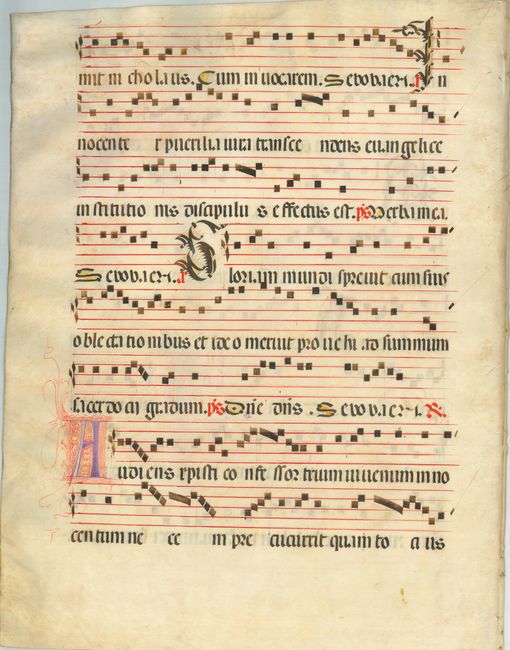 mit ni cho la us. Cum in uocarem. S e vo v a e r i. A I n
nocente r puerilia uita transce ndens euangelice
in stitutio nis discipulu s e ffectus est. ps Uerba mea.
S e vo v a e r i. A G loriam mundi spreuit cum suis
o ble cta tio nibus et ide o meruit pro ue hi ad summum
sacer do cij gradum. ps Dñe dñs. S e vo v a e r i. R.
A udiens xpisti co nfe ssor trium iuuenum in no
cen tum ne ce m pre cucurrit quam to ci us